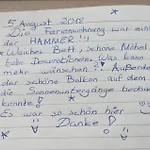 5 August 2018
Die Ferienwohnung war einfach
der HAMMER!!!
Weiches Bett, schöne Möbel
tolle Dekorationen. Was kann
mehr wünschen? Außerdem
der schöne Balkon auf dem
die Sonnenuntergänge beobachten
konnte!
Es war so schön hier.
Danke